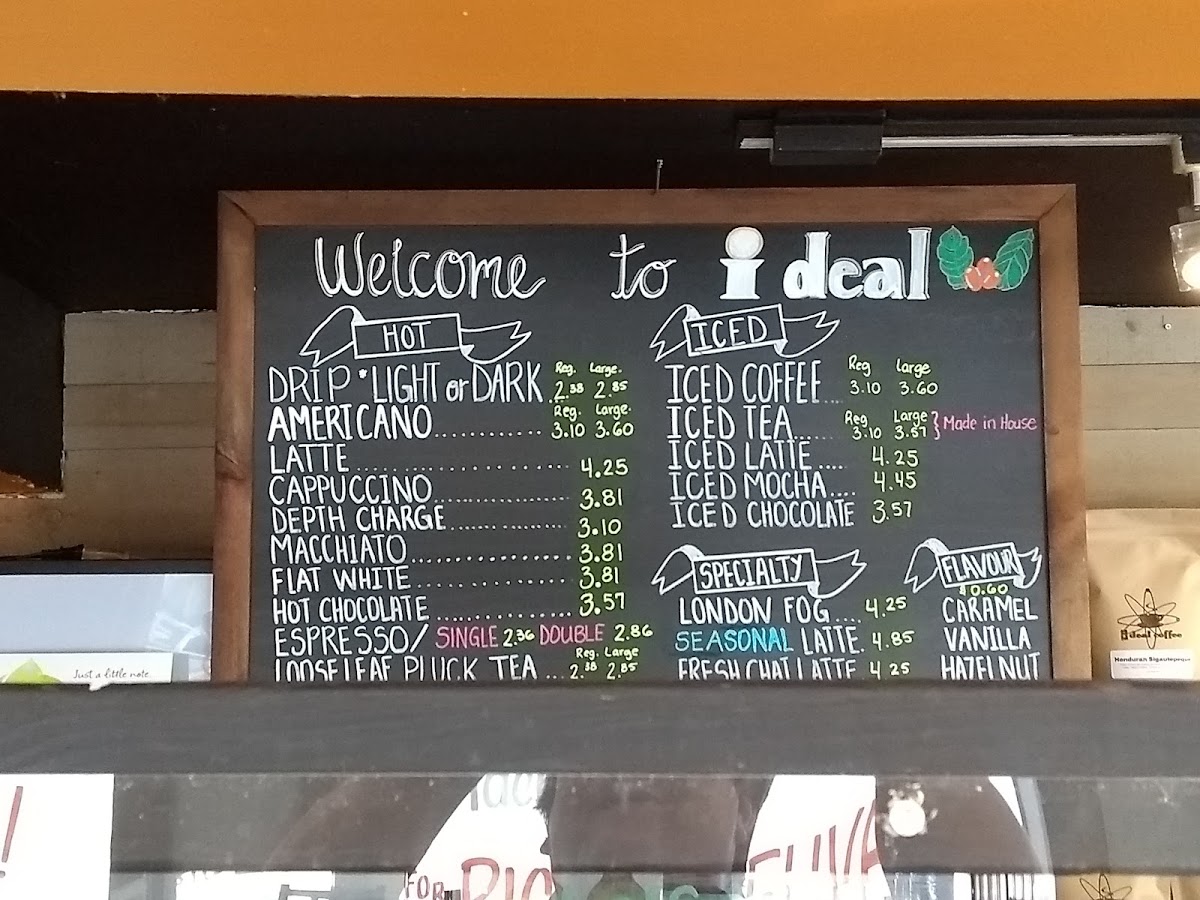 Welcome to i deal
HOT
DRIP * LIGHT or DARK .. Reg. 2.38 Large. 2.85
AMERICANO .......... Reg. 3.10 Large. 3.60
LATTE .................... 4.25
CAPPUCCINO ............ 3.81
DEPTH CHARGE ........... 3.10
MACCHIATO .............. 3.81
FLAT WHITE .............. 3.81
HOT CHOCOLATE ........... 3.57
ESPRESSO/ SINGLE 2.36 DOUBLE 2.86
LOOSE LEAF PLUCK TEA ... Reg. 2.38 Large 2.85
ICED
ICED COFFEE .... Reg 3.10 Large 3.60
ICED TEA ...... Reg 3.10 Large 3.57 } Made in House
ICED LATTE .... 4.25
ICED MOCHA .... 4.45
ICED CHOCOLATE 3.57
SPECIALTY
LONDON FOG ... 4.25
SEASONAL LATTE. 4.85
FRESH CHAI LATTE 4.25
FLAVOUR
$0.60
CARAMEL
VANILLA
HAZELNUT
Just a little note
ideal coffee
Honduran Sigautepeque
FOR